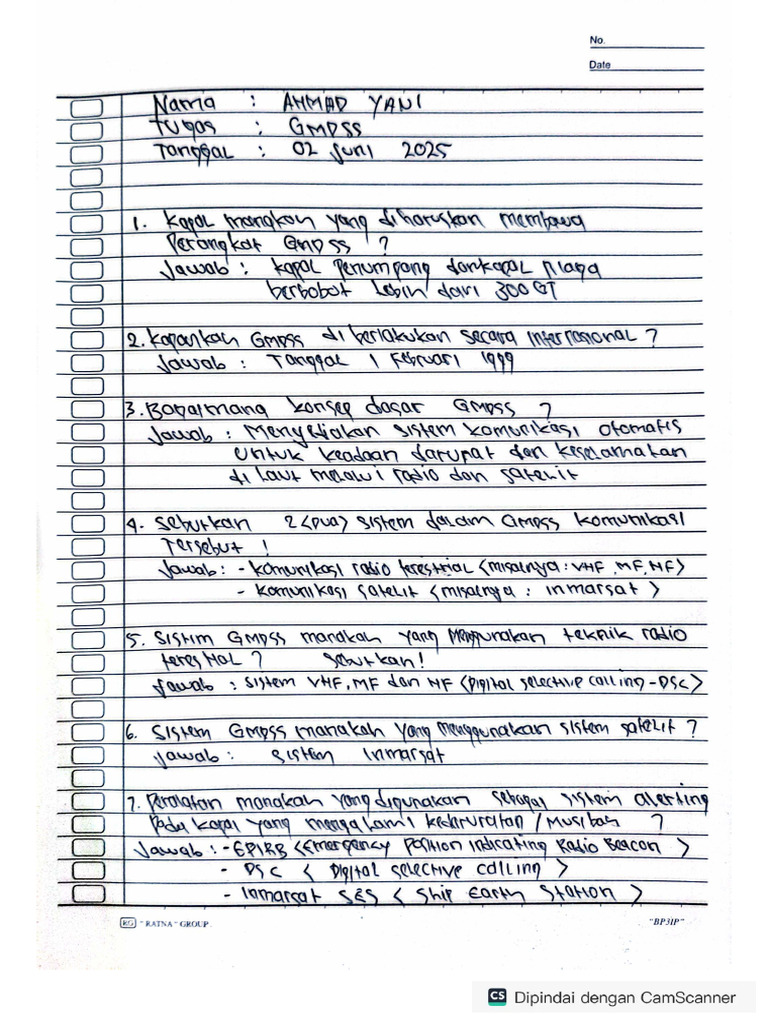 No.
Date
Nama : AHMAD YANI
Tugas : GMDSS
Tanggal : 02 Juni 2025
1. Kapal manakah yang diharuskan membawa
Perangkat GMDSS ?
Jawab : Kapal Penumpang dan kapal Niaga
berbobot Lebih dari 300 GT
2. Kapankah GMDSS di berlakukan secara Internasional ?
Jawab : Tanggal 1 Februari 1999
3. Bagaimana konsep dasar GMDSS ?
Jawab : Menyediakan sistem komunikasi otomatis
untuk keadaan darurat dan keselamatan
di laut melalui radio dan satelit
4. Sebutkan 2 (Dua) sistem dalam GMDSS komunikasi
Tersebut !
Jawab : - komunikasi radio terestrial (misalnya : VHF, MF, HF)
- komunikasi satelit (misalnya : inmarsat )
5. Sistim GMDSS manakah yang Menggunakan teknik radio
terestrial ? Sebutkan !
Jawab : sistem VHF, MF dan HF (Digital selective calling - DSC)
6. Sistem GMDSS manakah yang menggunakan sistem satelit ?
Jawab : sistem inmarsat
7. Peralatan manakah yang digunakan sebagai sistem alerting
Pada kapal yang mengalami kedaruratan / Musibah ?
Jawab : - EPIRB (Emergency Position indicating Radio Beacon )
- DSC ( Digital selective calling )
- Inmarsat SES ( Ship Earth Station )
RG " RATNA " GROUP
"BP3IP"
CS Dipindai dengan CamScanner